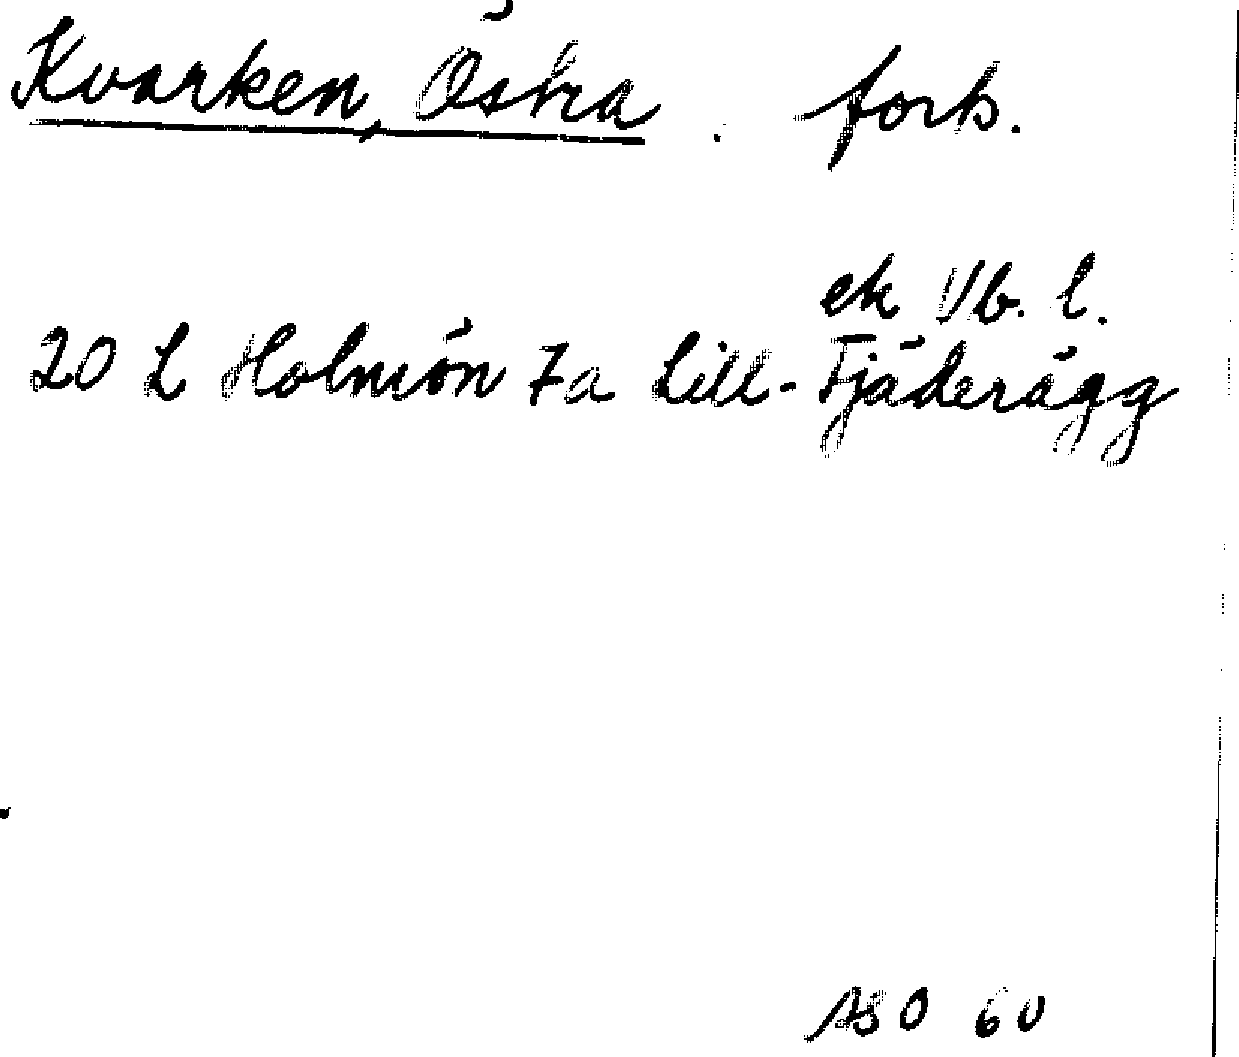 Kvarken, Östra . forts.
ek Vb. l.
20 L Holmön 7a Lill-Fjäderägg
ASO 60